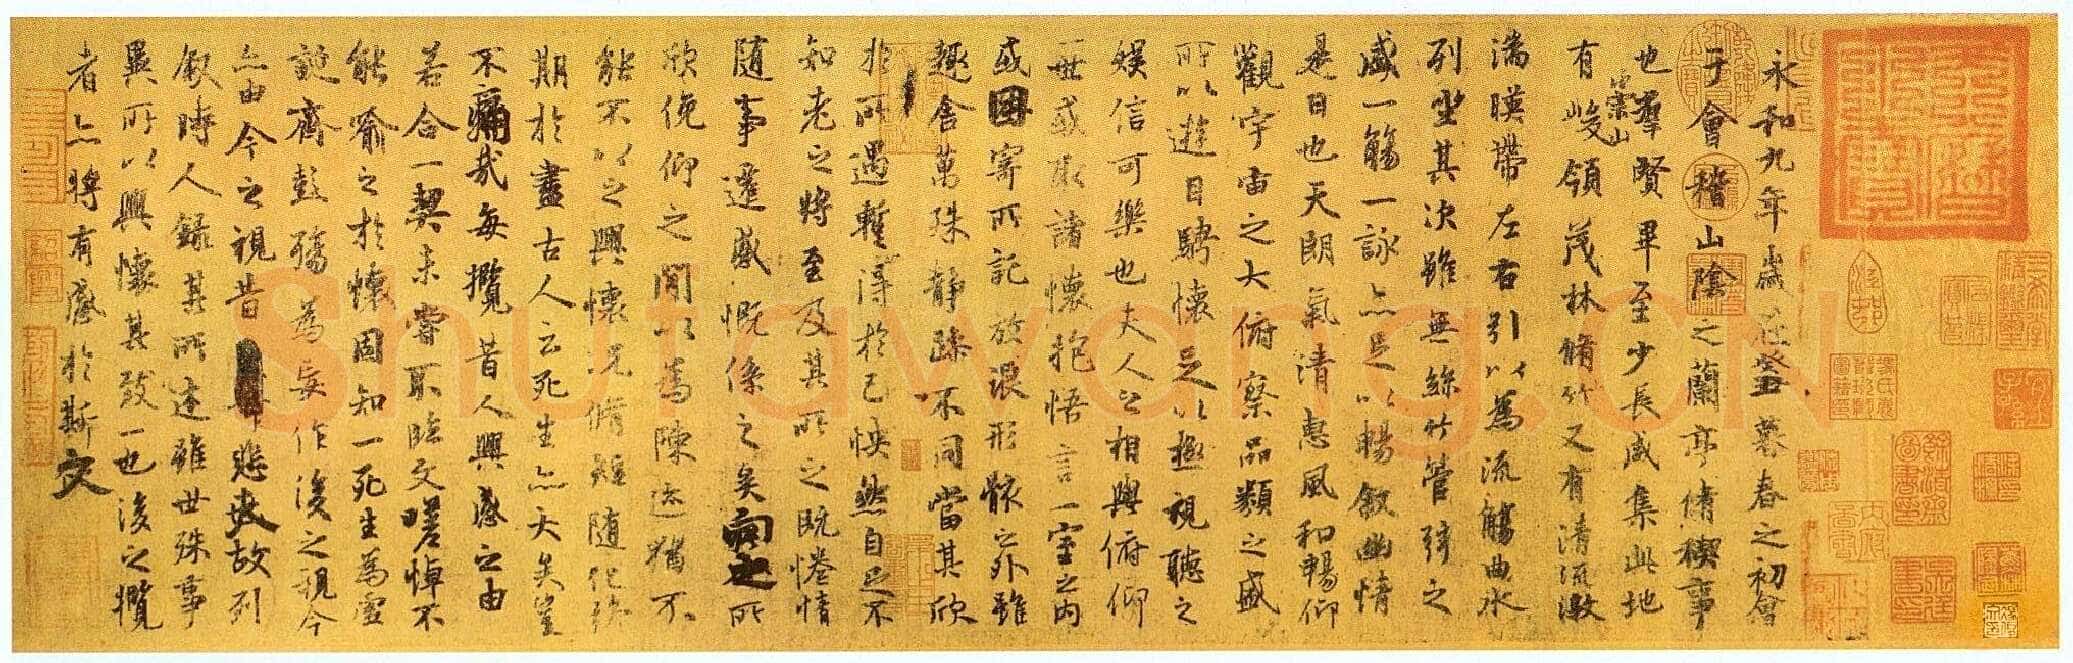 永和九年歲在癸丑暮春之初會
于會稽山陰之蘭亭脩稧事
也羣賢畢至少長咸集此地
有崇山峻領茂林脩竹又有清流激
湍暎帶左右引以為流觴曲水
列坐其次雖無絲竹管弦之
盛一觴一詠亦足以暢敘幽情
是日也天朗氣清惠風和暢仰
觀宇宙之大俯察品類之盛
所以遊目騁懷足以極視聽之
娛信可樂也夫人之相與俯仰
一世或取諸懷抱悟言一室之內
或因寄所託放浪形骸之外雖
趣舍萬殊靜躁不同當其欣
於所遇蹔得於己怏然自足不
知老之將至及其所之既惓情
隨事遷感慨係之矣向之所
欣俛仰之閒以為陳迹猶不
能不以之興懷況脩短隨化終
期於盡古人云死生亦大矣豈
不痛哉每攬昔人興感之由
若合一契未嘗不臨文嗟悼不
能喻之於懷固知一死生為虛
誕齊彭殤為妄作後之視今
亦由今之視昔悲夫故列
敘時人錄其所述雖世殊事
異所以興懷其致一也後之攬
者亦將有感於斯文
Shufawang.CN